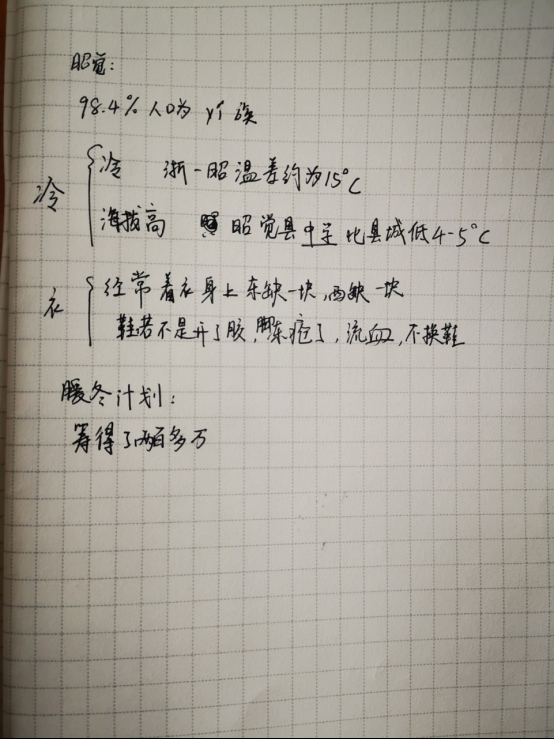 昭觉:
98.4% 人口为 yí 族
冷
冷 浙-昭温差约为15°C
海拔高 昭觉县中学比县城低4-5°C
衣
经常着衣身上东缺一块,西缺一块
鞋若不是开了胶,脚冻疮了,流血,不换鞋
暖冬计划:
筹得了两百多万